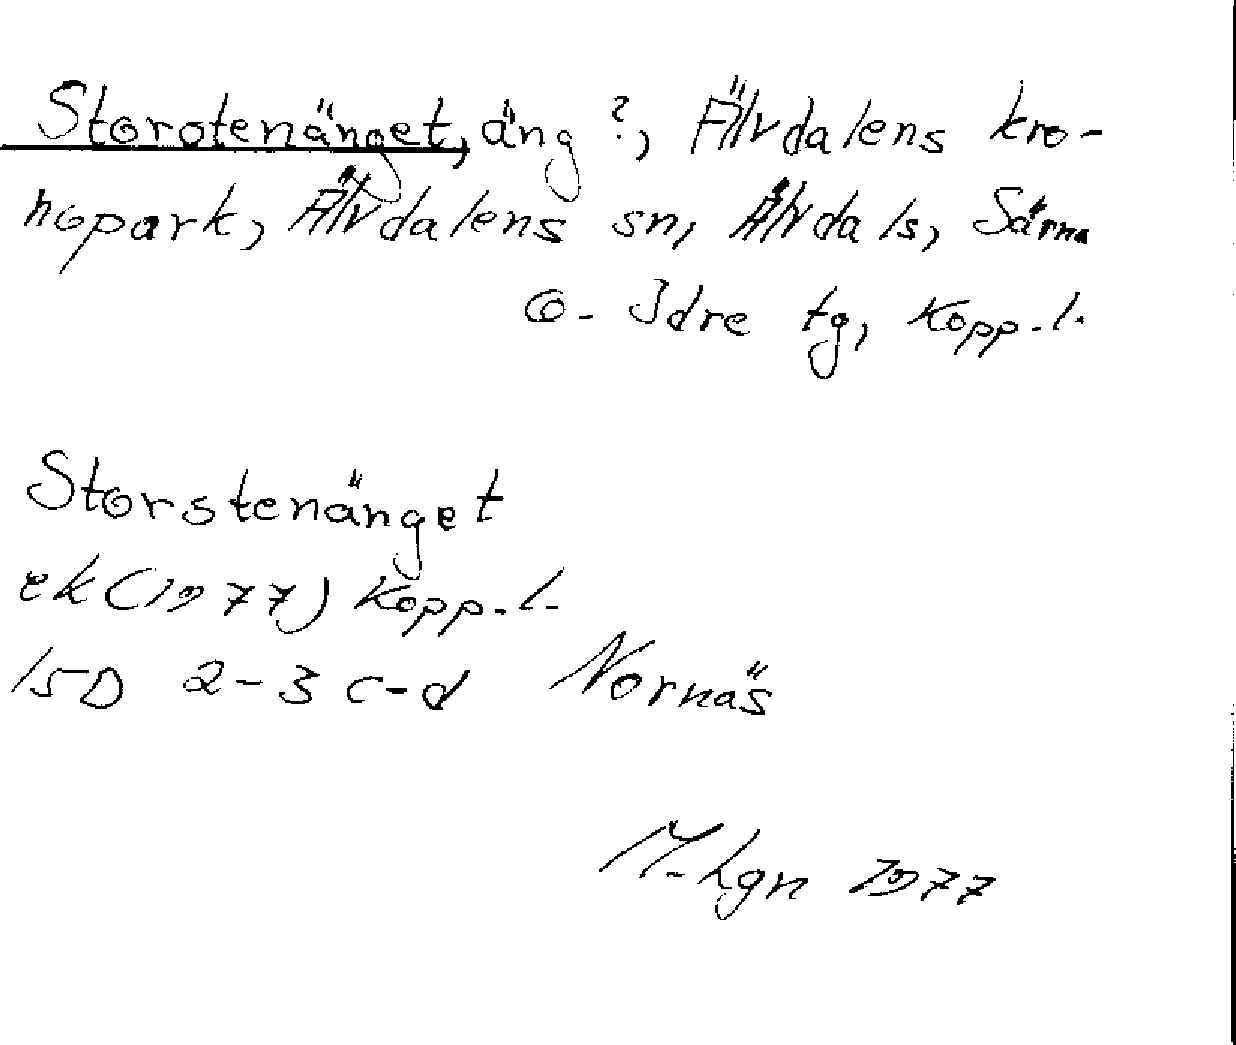 Storotenänget, äng ?, Älvdalens kro-
nopark, Älvdalens sn, Älvdals, Särna
o. Idre tg, Kopp. l.
Storstenänget
ek (1977) Kopp. l.
15D 2-3 c-d Nornäs
1977